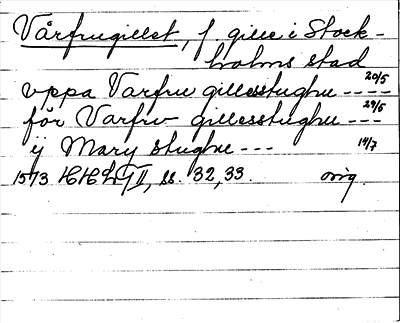 Vårfrugillet, f. gille i Stock-
holms stad
vppa Varfru gillesstughu ---- 20/5
för Varfrv gillesstughu --- 29/5
ij Mary stughu --- 19/7
1573 HH ss. 32, 33. orig.